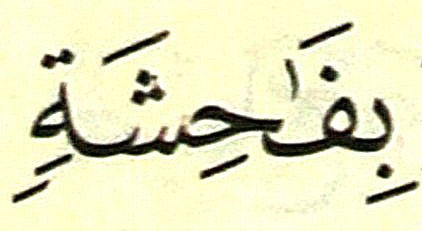 بِفَـٰحِشَةٍ